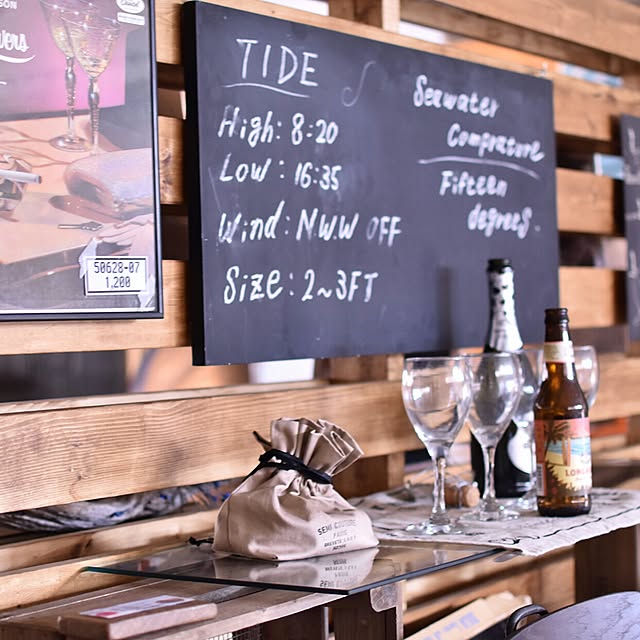 SON
vers
50628-07
1,200
TIDE
High: 8:20
Low: 16:35
Wind: N.W.W OFF
Size: 2~3FT
Seawater
Comprature
Fifteen
degrees.
SEMI
PARIS
LON